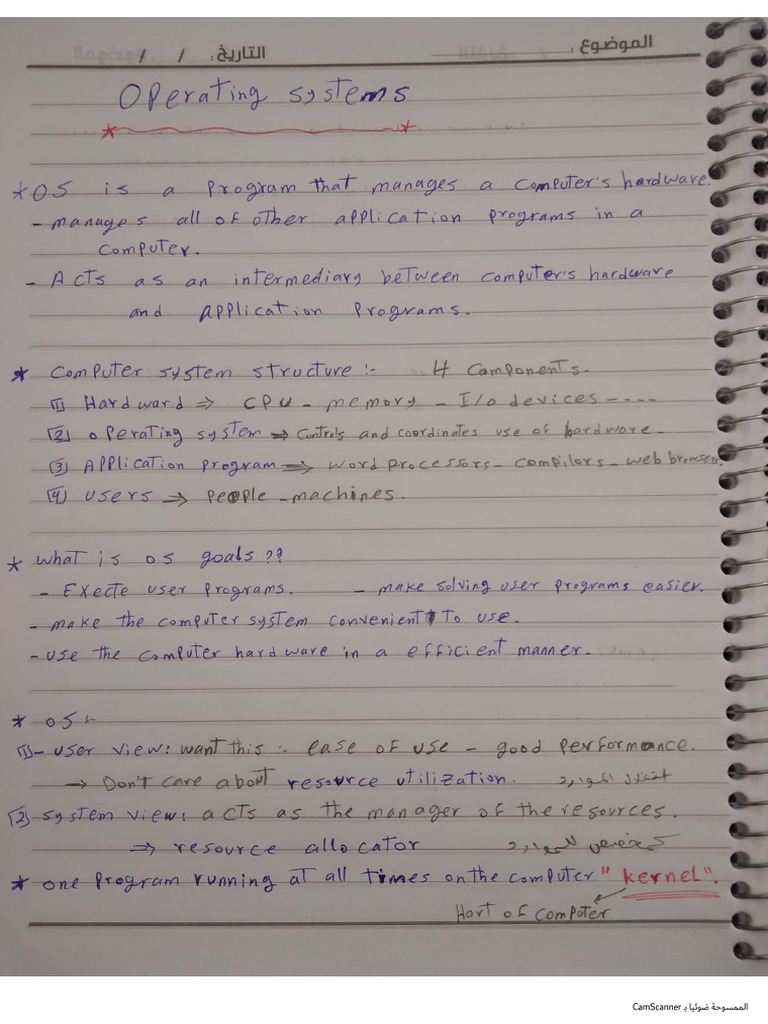 الموضوع :
التاريخ : / /
Operating systems
* OS is a program that manages a computer's hardware.
- manages all of other application programs in a
computer.
- Acts as an intermediary between computer's hardware
and application programs.
* Computer system structure :- 4 components.
[1] Hardward ⇒ CPU - memory - I/o devices - - - -
[2] operating system ⇒ Controls and coordinates use of hardware -
[3] Application program ⇒ word processors - compilors - web browsers.
[4] users ⇒ people - machines.
* what is os goals ??
- Execte user programs. - make solving user programs easier.
- make the computer system convenient to use.
- use the computer hardware in a efficient manner.
* OS :-
[1]- user view: want this :- ease of use - good performance.
→ Don't care about resource utilization. استغلال الموارد
[2] system view: acts as the manager of the resources.
⇒ resource allocator كمخصص للموارد
* one program running at all times on the computer "kernel".
Hart of computer
الممسوحة ضوئيا بـ CamScanner